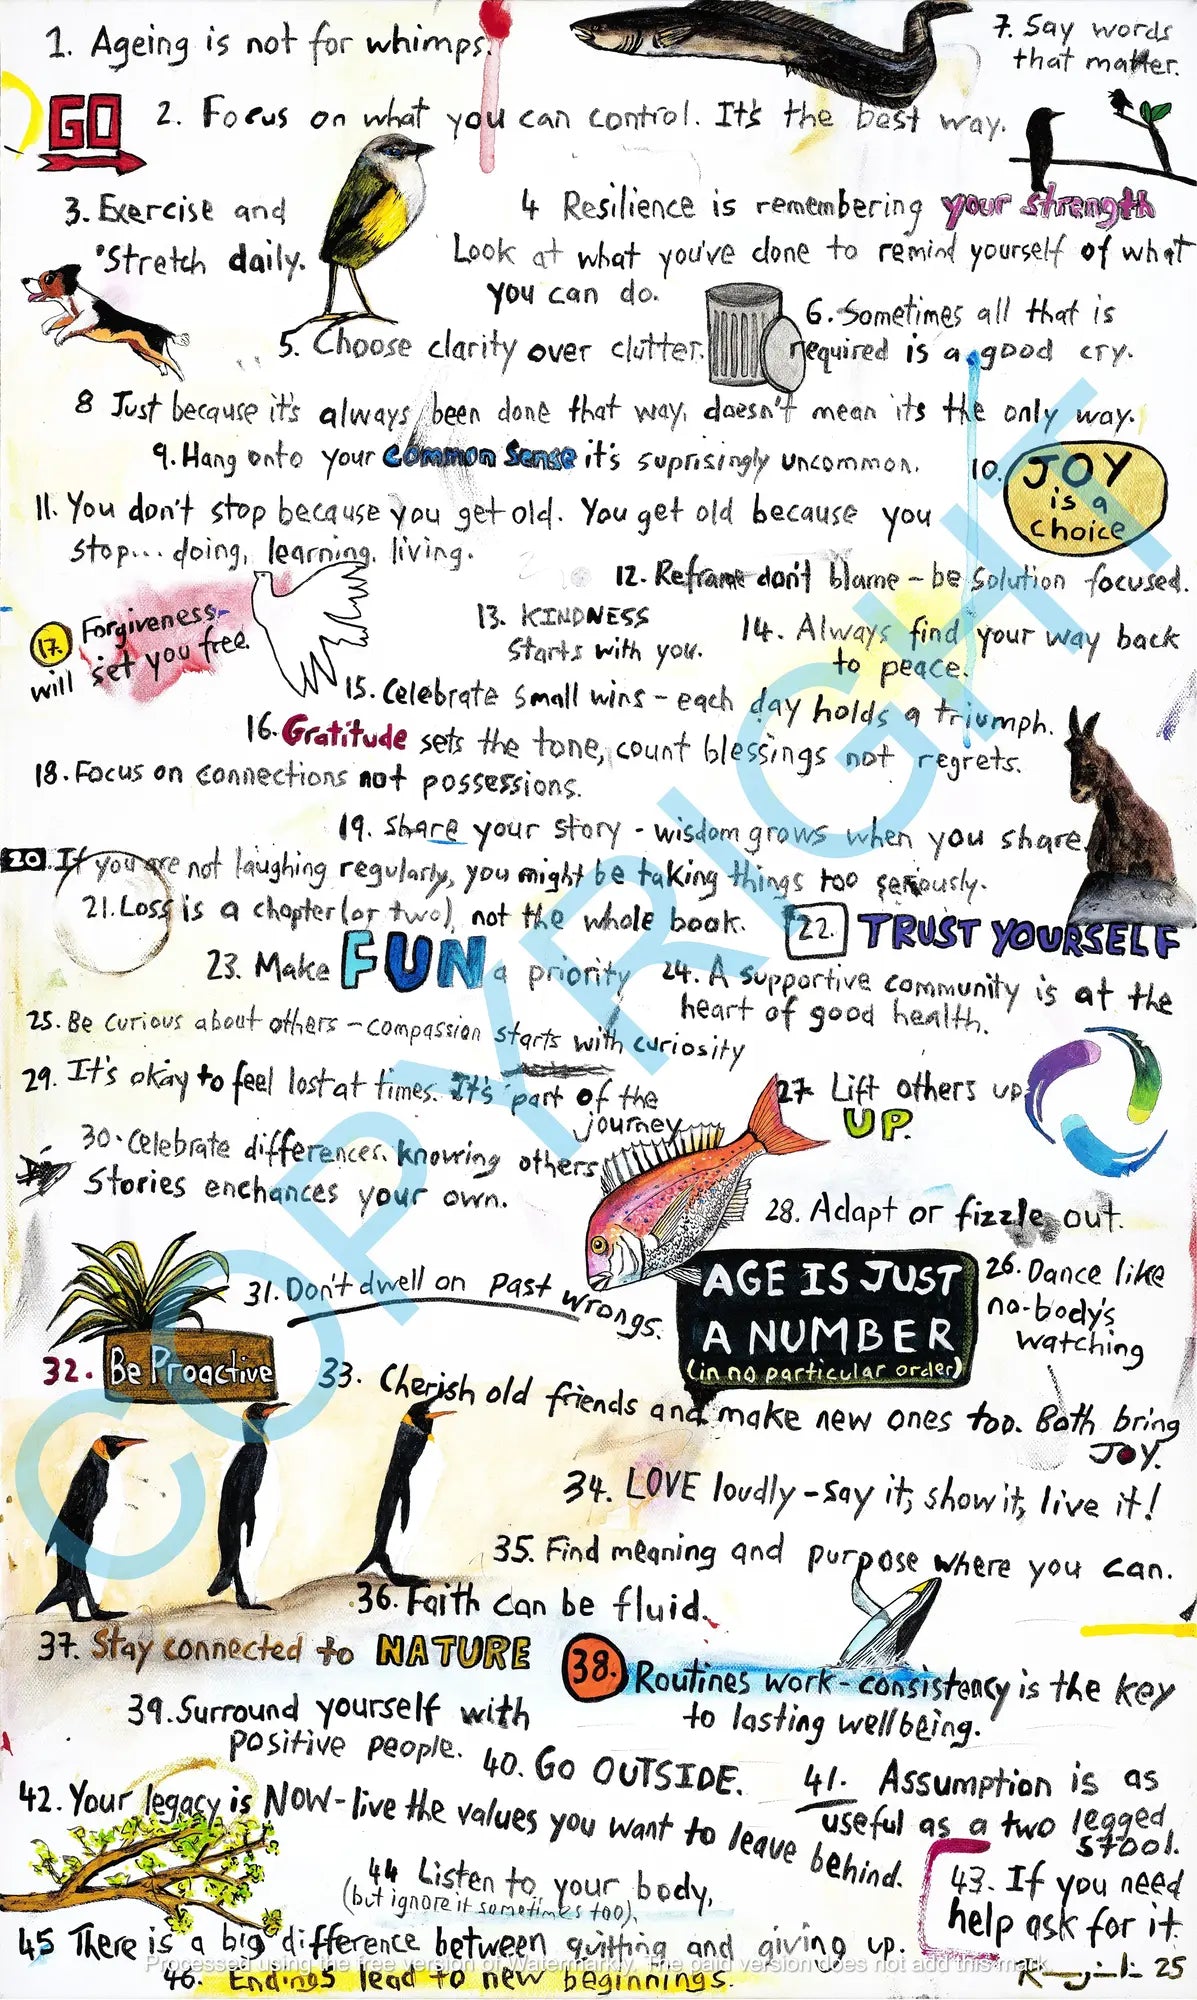 1. Ageing is not for whimps.
7. Say words
that matter.
GO
2. Focus on what you can control. It's the best way.
3. Exercise and
Stretch daily.
4 Resilience is remembering your strength
Look at what you've done to remind yourself of what
you can do.
5. Choose clarity over clutter.
6. Sometimes all that is
required is a good cry.
8 Just because it's always been done that way, doesn't mean its the only way.
9. Hang onto your common Sense it's suprisingly uncommon.
10. JOY
is a
choice
11. You don't stop because you get old. You get old because you
stop... doing, learning, living.
12. Reframe don't blame - be solution focused.
17. Forgiveness
will set you free.
13. KINDNESS
Starts with you.
14. Always find your way back
to peace.
15. Celebrate small wins - each day holds a triumph.
16. Gratitude sets the tone, count blessings not regrets.
18. Focus on connections not possessions.
19. Share your story - wisdom grows when you share.
20. If you are not laughing regularly, you might be taking things too seriously.
21. Loss is a chapter (or two), not the whole book.
22. TRUST YOURSELF
23. Make FUN a priority
24. A supportive community is at the
heart of good health.
25. Be curious about others - compassion starts with curiosity
29. It's okay to feel lost at times. It's part of the
journey
27. Lift others up
UP.
30. Celebrate differences. knowing others
Stories enchances your own.
28. Adapt or fizzle out.
31. Don't dwell on past wrongs.
AGE IS JUST
A NUMBER
(in no particular order)
26. Dance like
no-body's
watching
32. Be Proactive
33. Cherish old friends and make new ones too. Both bring
JOY.
34. LOVE loudly - say it, show it, live it!
35. Find meaning and purpose where you can.
36. Faith can be fluid.
37. Stay connected to NATURE
38. Routines work - consistency is the key
to lasting wellbeing.
39. Surround yourself with
positive people.
40. GO OUTSIDE.
41. Assumption is as
useful as a two legged
stool.
42. Your legacy is NOW - live the values you want to leave behind.
43. If you need
help ask for it.
44 Listen to your body,
(but ignore it sometimes too).
45 There is a big difference between quitting and giving up.
46. Endings lead to new beginnings.
25
COPYRIGHT
Processed using the free version of Watermarkly. The paid version does not add this mark.